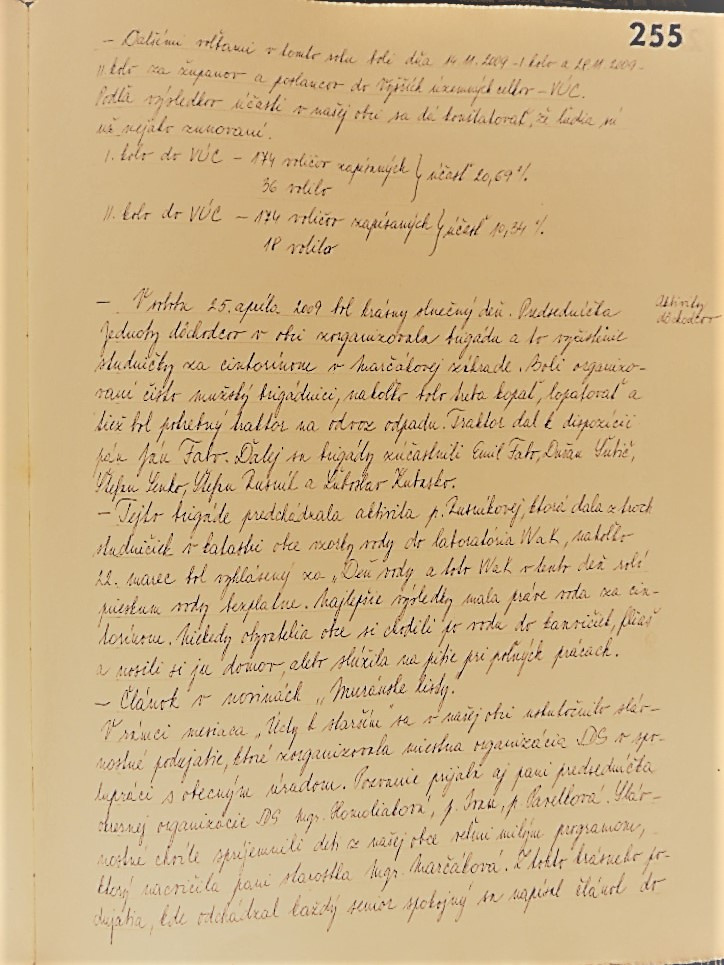 255
– Ďalšími voľbami v tomto roku boli dňa 14.11.2009 – I. kolo a 28.11.2009 –
II. kolo za županov a poslancov do Vyšších územných celkov – VÚC.
Podľa výsledkov účasti v našej obci sa dá konštatovať, že ľudia sú
už nejako znechutení.
I. kolo do VÚC – 174 voličov zapísaných } účasť 20,69 %.
36 volilo
II. kolo do VÚC – 174 voličov zapísaných } účasť 10,34 %.
18 volilo
– V sobotu 25. apríla 2009 bol krásny slnečný deň. Predsedníčka
Aktivity
dôchodcov
Jednoty dôchodcov v obci zorganizovala brigádu a to vyčistenie
studničky za cintorínom v Marčákovej záhrade. Boli organizo-
vaní čisto mužskí brigádnici, nakoľko bolo treba kopať, lopatovať a
tiež bol potrebný traktor na odvoz odpadu. Traktor dal k dispozícii
pán Ján Fabo. Ďalej sa brigády zúčastnili Emil Fabo, Dušan
Štefan Senko, Štefan a Ľuboslav
– Tejto brigáde predchádzala aktivita p. ktorá dala z troch
studničiek v katastri obce vzorky vody do laboratória VaK, nakoľko
22. marec bol vyhlásený za „Deň vody a toto VaK v tento deň robí
prieskum vody bezplatne. Najlepšie výsledky mala práve voda za cin-
torínom. Niekedy obyvatelia obce si chodili po vodu do kanvičiek, fliaš
a nosili si ju domov, alebo slúžila na pitie pri poľných prácach.
– Článok v novinách „Muránske listy.
V rámci mesiaca „Úcty k starším" sa v našej obci uskutočnilo sláv-
nostné podujatie, ktoré zorganizovala miestna organizácia JDS v spo-
lupráci s obecným úradom. Pozvanie prijala aj pani predsedníčka
okresnej organizácie JDS Mgr. Homoliaková, p. Ivan, p. Pavelková. Sláv-
nostné chvíle spríjemnili deti z našej obce veľmi milým programom,
ktorý nacvičila pani starostka Mgr. Marčáková. Z tohto krásneho po-
dujatia, kde odchádzal každý senior spokojný sa napísal článok do